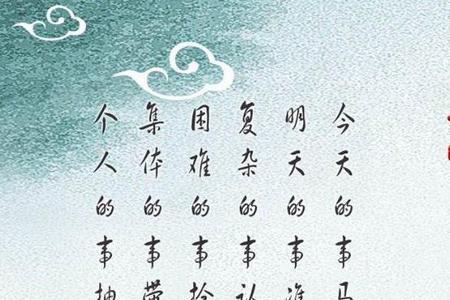 今天的事马
明天的事准
复杂的事认
困难的事抢
集体的事带
个人的事抽